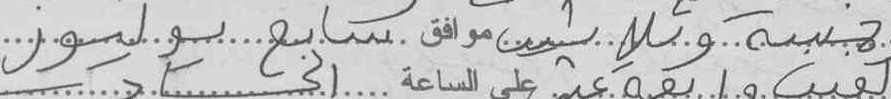 خمسة وثلاثين موافق سابع يوليوز
ألفين وأربعة عشر على الساعة الحادية